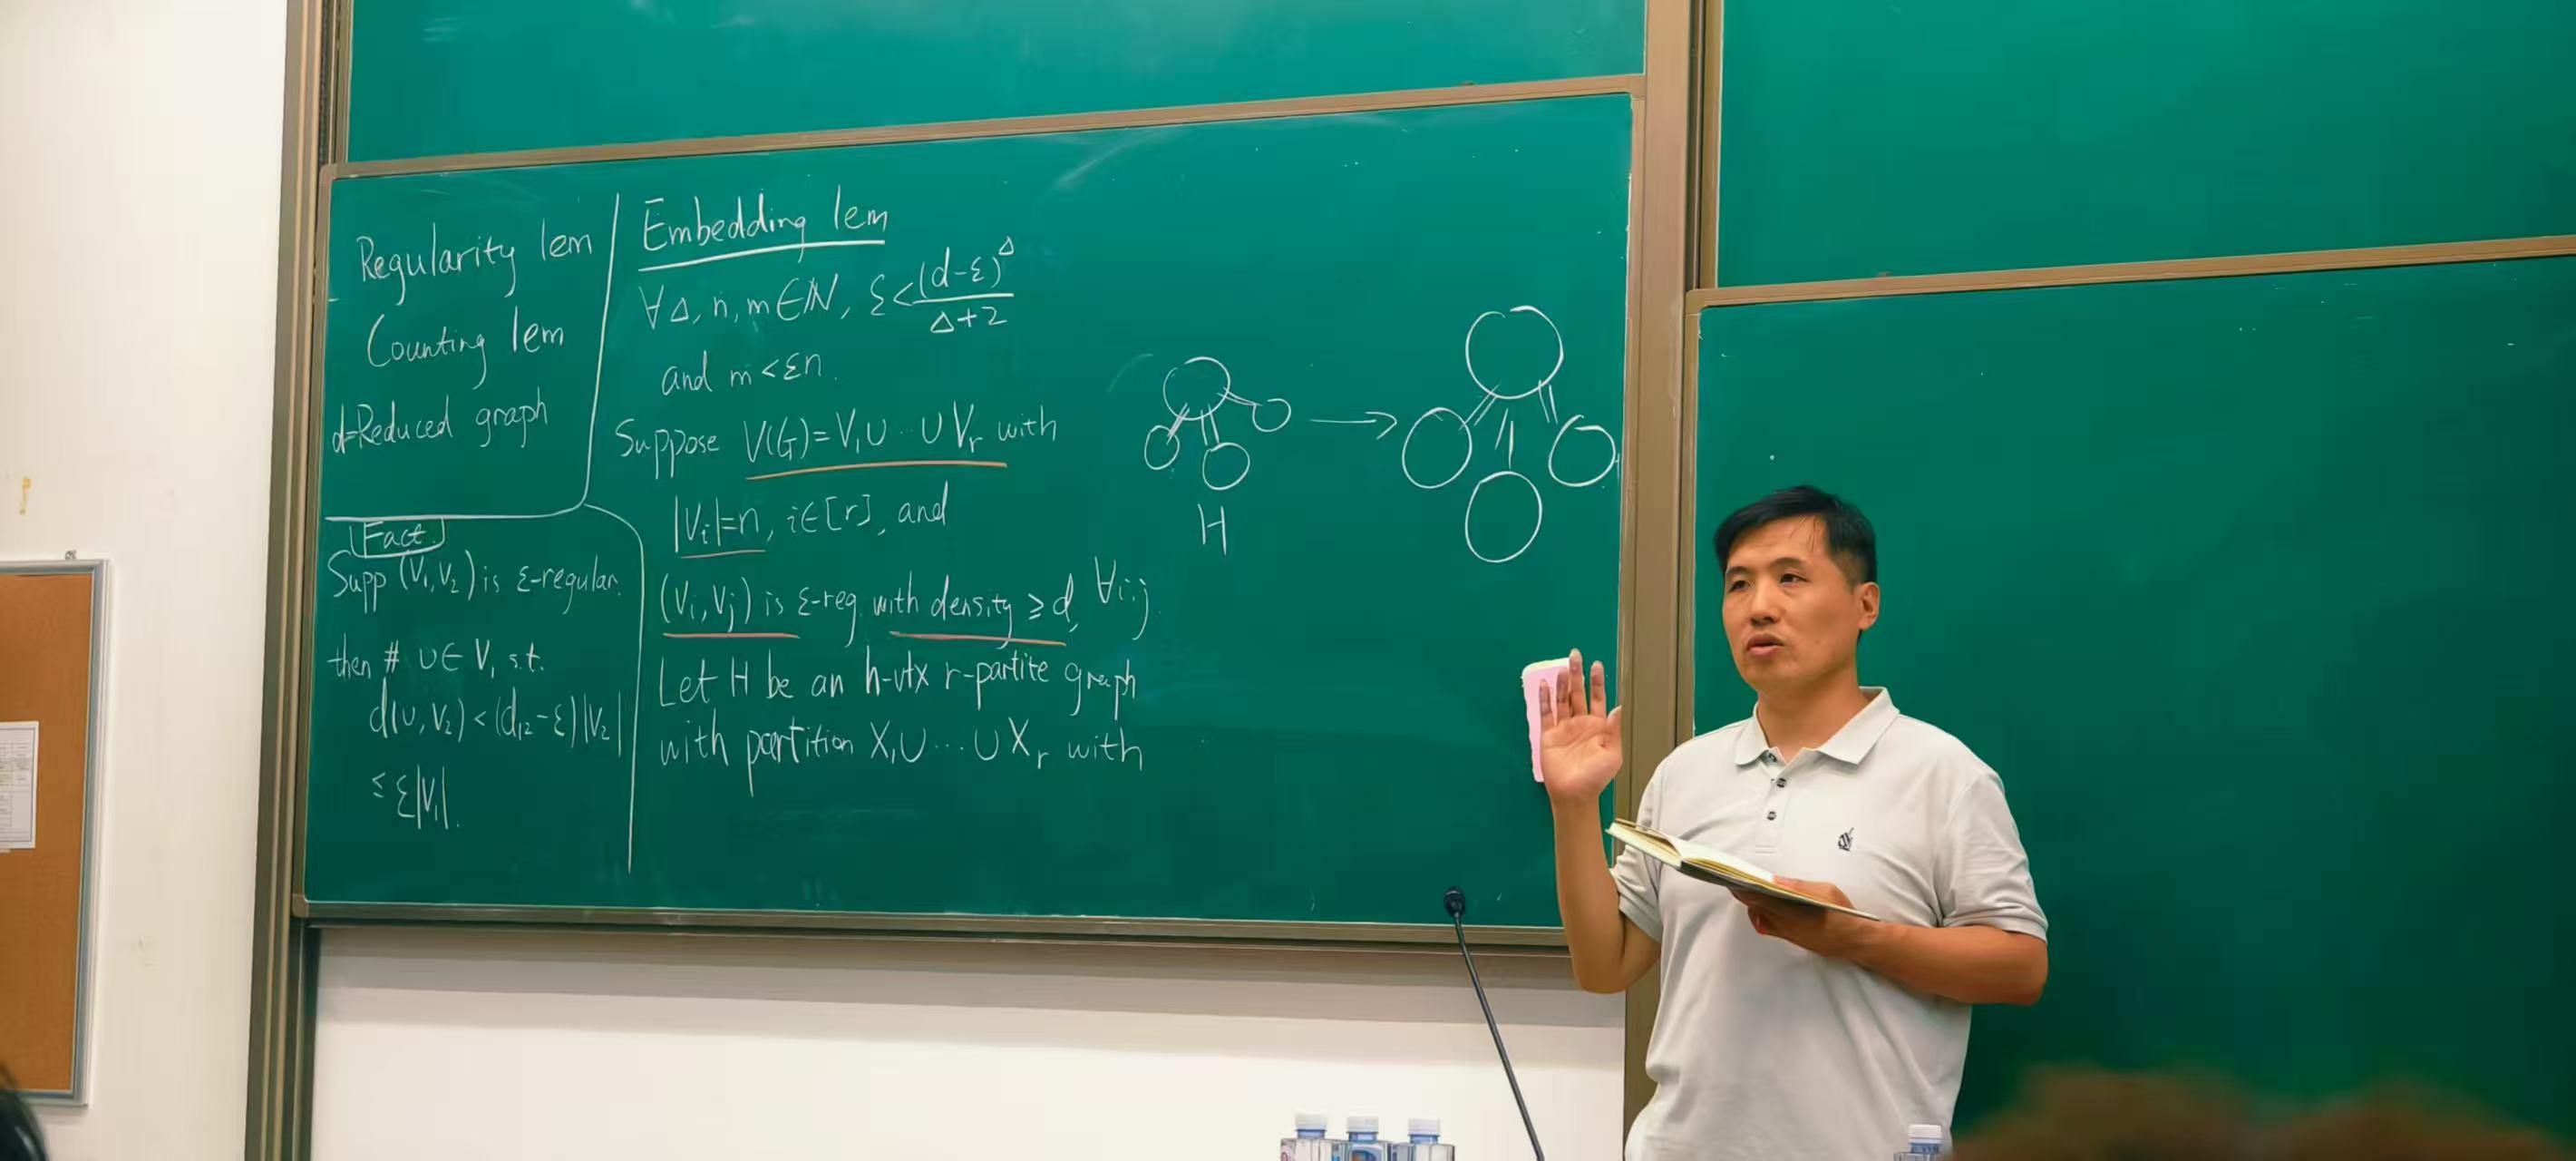 Regularity lem
Counting lem
d-Reduced graph
Fact.
Supp (V₁,V₂) is ε-regular.
then # υ∈ V₁ s.t.
d(υ, V₂) < (d₁₂-ε)|V₂|
≤ ε|V₁|.
Embedding lem
∀ Δ, n, m ∈ ℕ, ε < (d-ε)^Δ / Δ+2
and m < εn.
Suppose V(G) = V₁ ∪ ... ∪ Vᵣ with
|Vᵢ| = n, i∈[r], and
(Vᵢ, Vⱼ) is ε-reg. with density ≥ d, ∀i,j.
Let H be an h-vtx r-partite graph
with partition X₁∪ ... ∪ Xᵣ with
H